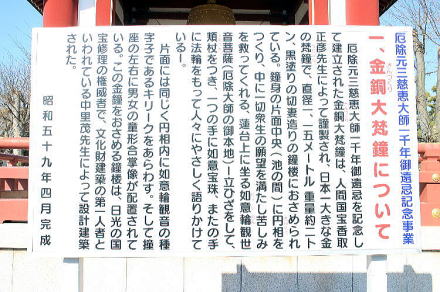 厄除元三慈恵大師一千年御遠忌記念事業
一、金銅大梵鐘について
厄除元三慈恵大師一千年御遠忌を記念し
て建立された金銅大梵鐘は、人間国宝香取
正彦先生によって謹製され、日本一大きな金
の梵鐘で、直径一・一五メートル 重量約二ト
ン、黒塗りの切妻造りの鐘楼におさめられ
ている。鐘身の片面中央(池の間)に円相を
つくり、中に一切衆生の願望を満たし苦しみ
を救ってくれる、蓮台上に坐る如意輪観世
音菩薩(厄除大師の御本地)―立ひざをして、
頬杖をつき、二つの手に如意宝珠、またの手
に法輪をもって人々にやさしく語りかけて
いる―。
片面には同じく円相内に如意輪観音の種
字子であるキリークをあらわす。そして撞
座の左右に男女の童形合掌像が配置されて
いる。この金鐘をおさめる鐘楼は、日光の国
宝修理の権威者で、文化財建築の第一人者と
いわれている中里茂先生によって設計建築
された。
昭和五十九年四月完成